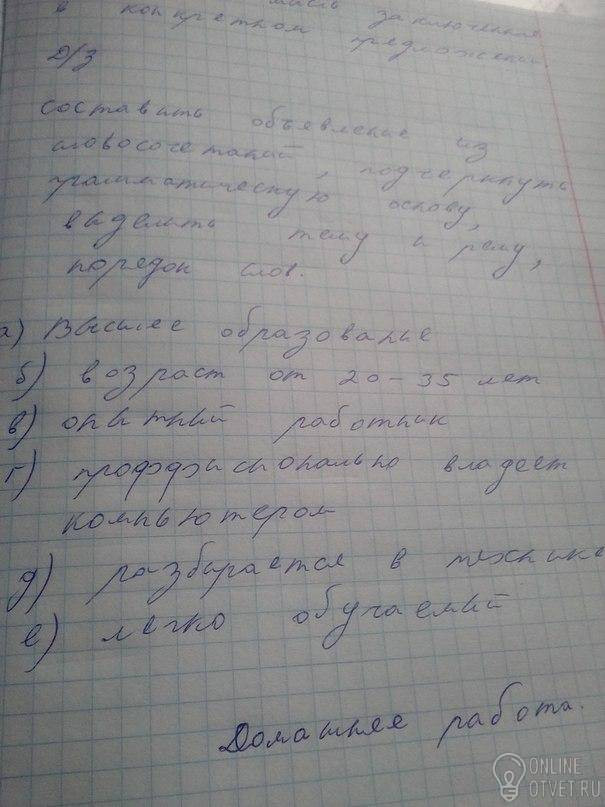 в конкретном предложении.
Д/З
составить объявление из
словосочетаний, подчеркнуть
грамматическую основу,
выделить тему и рему,
порядок слов.
а) Высшее образование
б) возраст от 20-35 лет
в) опытный работник
г) проффэсионально владеет
компьютером
д) разбирается в технике
е) легко обучаемый
Домашняя работа.
ONLINE
OTVET.RU